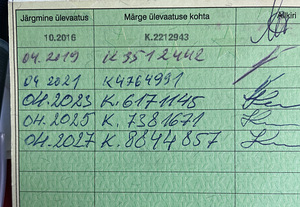 Järgmine ülevaatus Märge ülevaatuse kohta
10.2016 K.2212943
04.2019 K3512442
04 2021 K4764991
04.2023 K.6171145
04.2025 K.7381671
04.2027 K.8844857